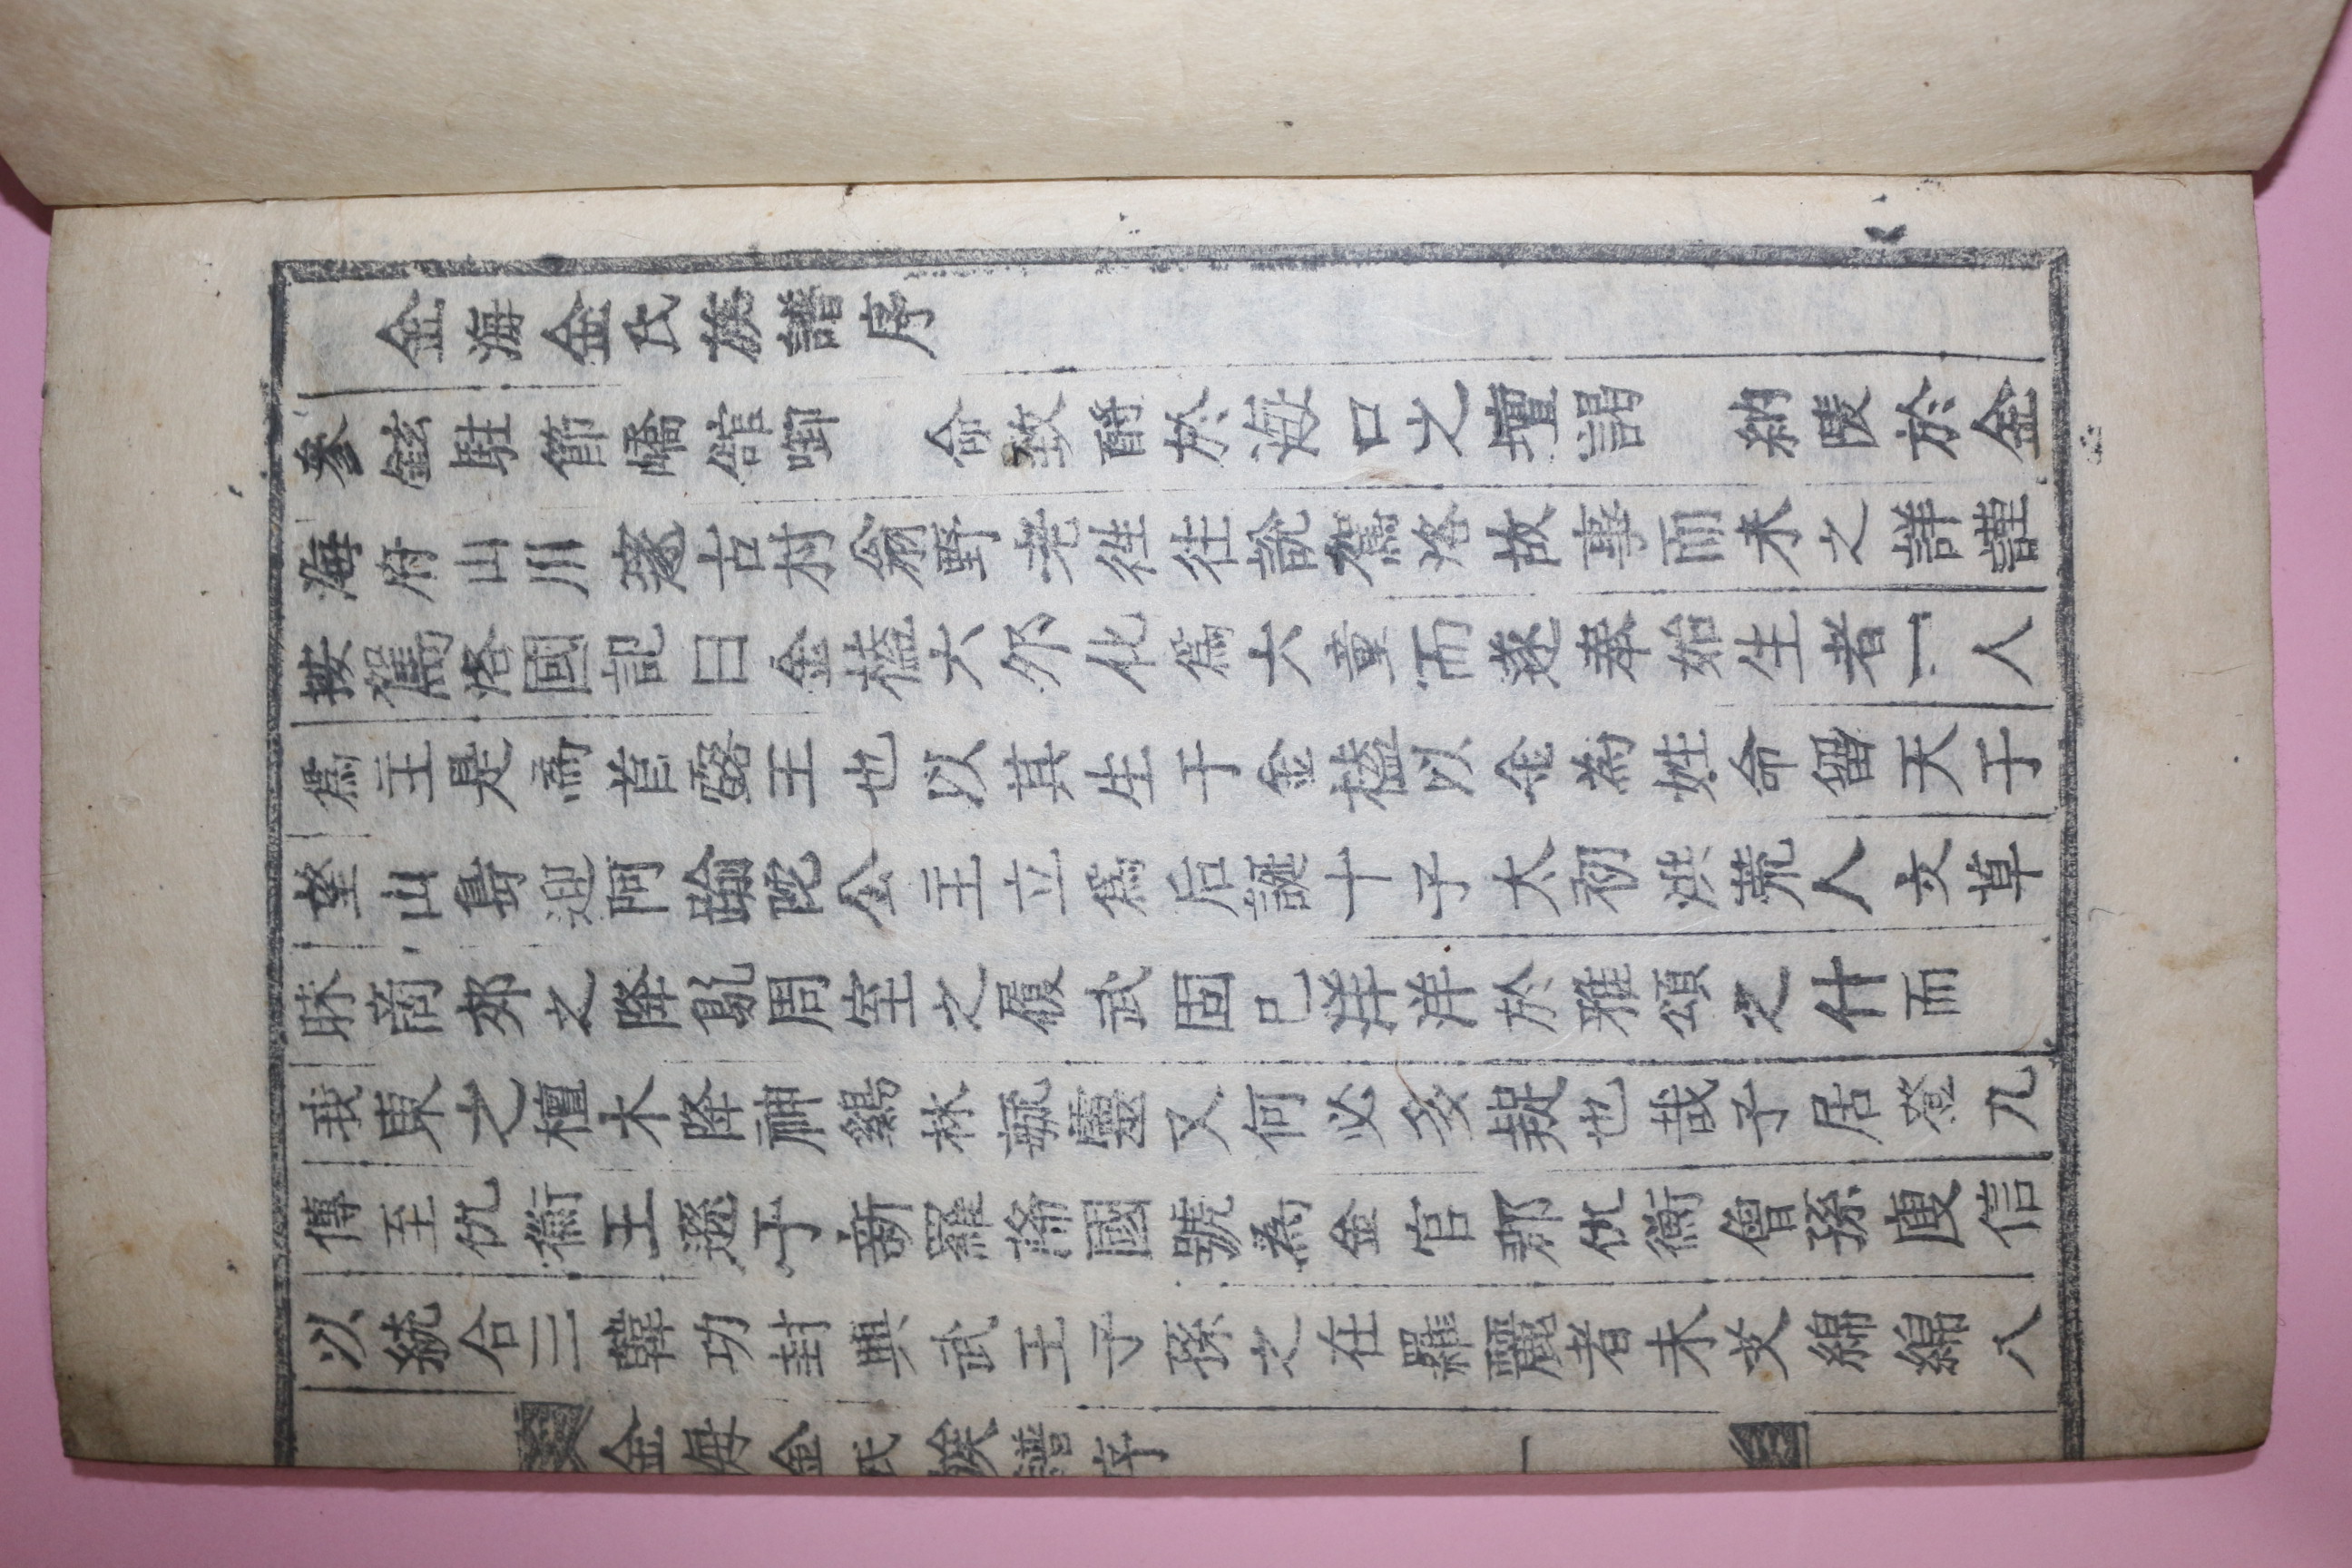 金海金氏族譜序
參鉉駐節嶠館啣 命致酹於海口之壇謁 納陵於金
海府山川邃古村翁野老徃徃說駕洛故事而未之詳謹
按駕洛國記曰金榼六夘化爲六童而遂奉始生者一人
爲主是爲首露王也以其生于金榼以金為姓命留天于
望山島迎阿踰陀公主立爲后誕十子太初洪荒人文草
昧商郊之降鳦周室之履武固已洋洋於雅頌之什而
我東之檀木降神鷄林毓靈又何必多疑也哉予居登九
傳至仇衡王遜于新羅除國號為金官郡仇衡曾孫庾信
以統合三韓功封興武王子孫之在羅麗者未艾綿綿八
金海金氏族譜序 一